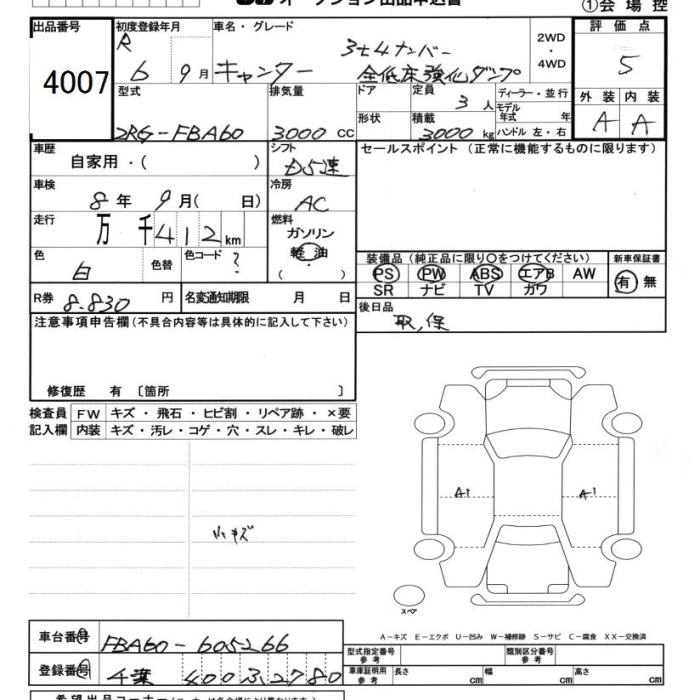 オークション出品申込書
①会場控
出品番号 初度登録年月 車名・グレード 評価点
4007 R 6 9月 キャンター 3t4ナンバー 全低床強化ダンプ 2WD・4WD 5
型式 排気量 ドア 定員 ディーラー・並行 外装 内装
2RG-FBA60 3000 CC 3人 モデル年式 年 A A
形状 積載 3000 kg ハンドル 左・右
車歴 シフト セールスポイント(正常に機能するものに限ります)
自家用・( ) D5速
車検 冷房
8年 9月( 日) AC
走行 燃料
万 千 412 km ガソリン
軽・油
( ・ )
色 色替 色コード
白 ?
装備品(純正品に限り○をつけてください) 新車保証書
PS PW ABS エアB AW 有 無
SR ナビ TV カワ
R券 8.830 円 名変通知期限 月 日
後日品
取,保
注意事項申告欄(不具合内容等は具体的に記入して下さい)
修復歴 有 〔箇所 〕
検査員 FW キズ・飛石・ヒビ割・リペア跡・×要
記入欄 内装 キズ・汚レ・コゲ・穴・スレ・キレ・破レ
A1 A1
小キズ
スペア
A-キズ E-エクボ U-凹み W-補修跡 S-サビ C-腐食 XX-交換済
車台番号 FBA60-605266
型式指定番号 参考 類別区分番号 参考
登録番号 千葉 400 ふ 2780
車庫証明用 参考 長さ cm 幅 cm 高さ cm